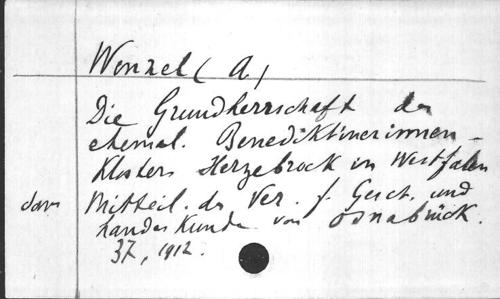 Wenzel (A)
Die Grundherrschaft der
ehemal. Benediktinerinnen-
Klosters Herzebrock in Westfalen
dans Mitteil. des Ver. f. Gesch. und
Landeskunde von Osnabrück.
37, 1912.